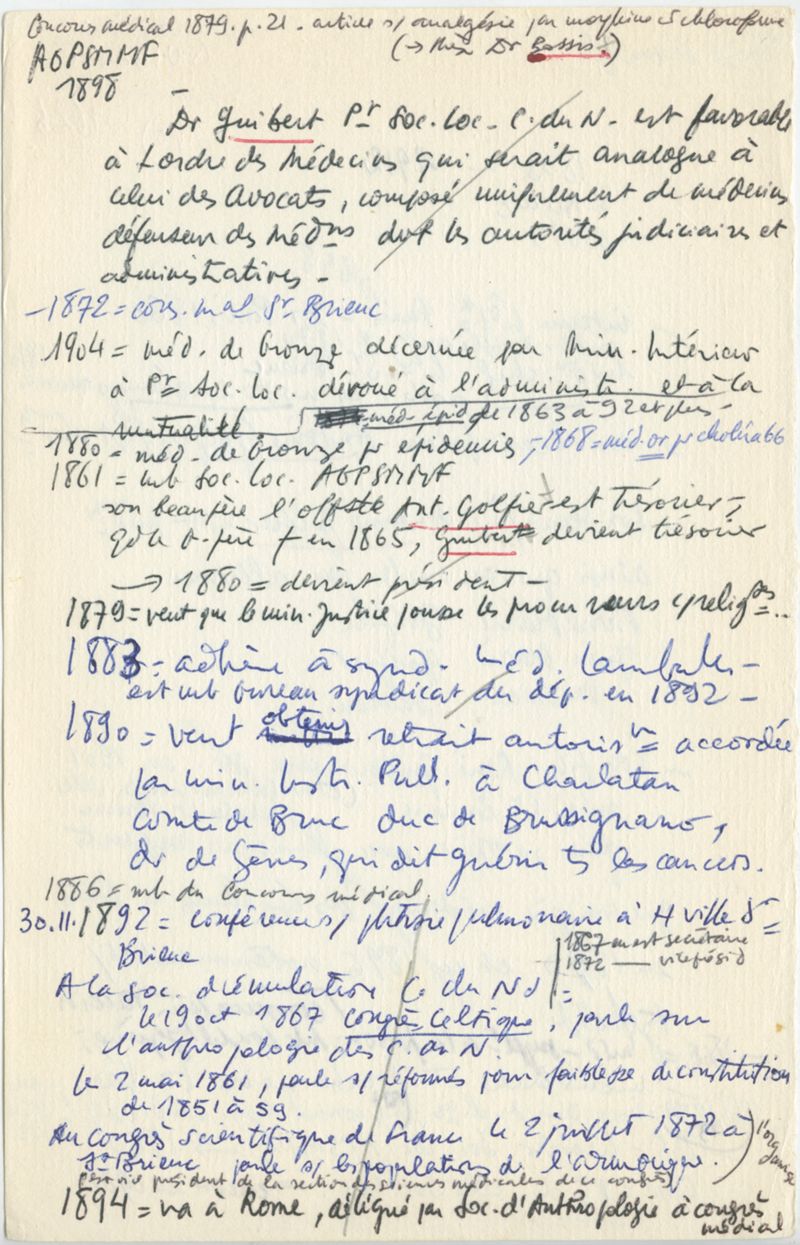 Concours médical 1879. p. 21 - article s/ analgésie par morphine et chloroforme
(→ thèse Dr Bassis.)
AGPSMMF
1898
Dr Guibert Pr Soc. Loc. C. du N. est favorable
à l'ordre des Médecins qui serait analogue à
celui des Avocats, composé uniquement de médecins
défenseur des Médns dvt les autorités judiciaires et
administratives -
- 1872 = cons. mal St Brieuc
1904 = méd. de bronze décernée par Min. Intérieur
à Pr Soc. loc. dévoué à l'administr. et à la
mutualité. méd. épid. de 1863 à 92 et plus -
1880 = méd. de bronze pr epidemies, - 1868 = méd. or pr choléra 66
1861 = mb Soc. Loc. AGPSMMF
son beau père l'off Ant. Golfier est trésorier -,
qd le b-père † en 1865, Guibert devient trésorier
→ 1880 = devient président -
1879 = veut que le min. Justice pousse les procureurs c/ religses = ..
1883 = adhère à synd. méd. Lamballe -
est mb bureau syndicat du dép. en 1892 -
1890 = veut obtenir retrait autorisn = accordée
par min. Instr. Publ. à Charlatan
Comte de Bruc duc de Brussignano,
dr de Gênes, qui dit guérir ts les cancers.
1886 = mb du Concours médical.
30.11.1892 = conférence s/ phtisie pulmonaire à H ville St =
Brieuc
1867 en est secrétaire
1872 — viceprésid
A la Soc. d'émulation C. du Nd =
le 19 oct 1867 congrès Celtique, parle sur
l'anthropologie des C. du N.
le 2 mai 1861, parle s/ réformés pour faiblesse de constitution
de 1851 à 59.
Au congrès scientifique de France le 2 juillet 1872 à
St Brieuc parle s/ les populations de l'armorique.
l'organise
(est vice président de la section des sciences médicales de ce congrès)
1894 = va à Rome, délégué par Soc. d'Anthropologie à congrès
médical